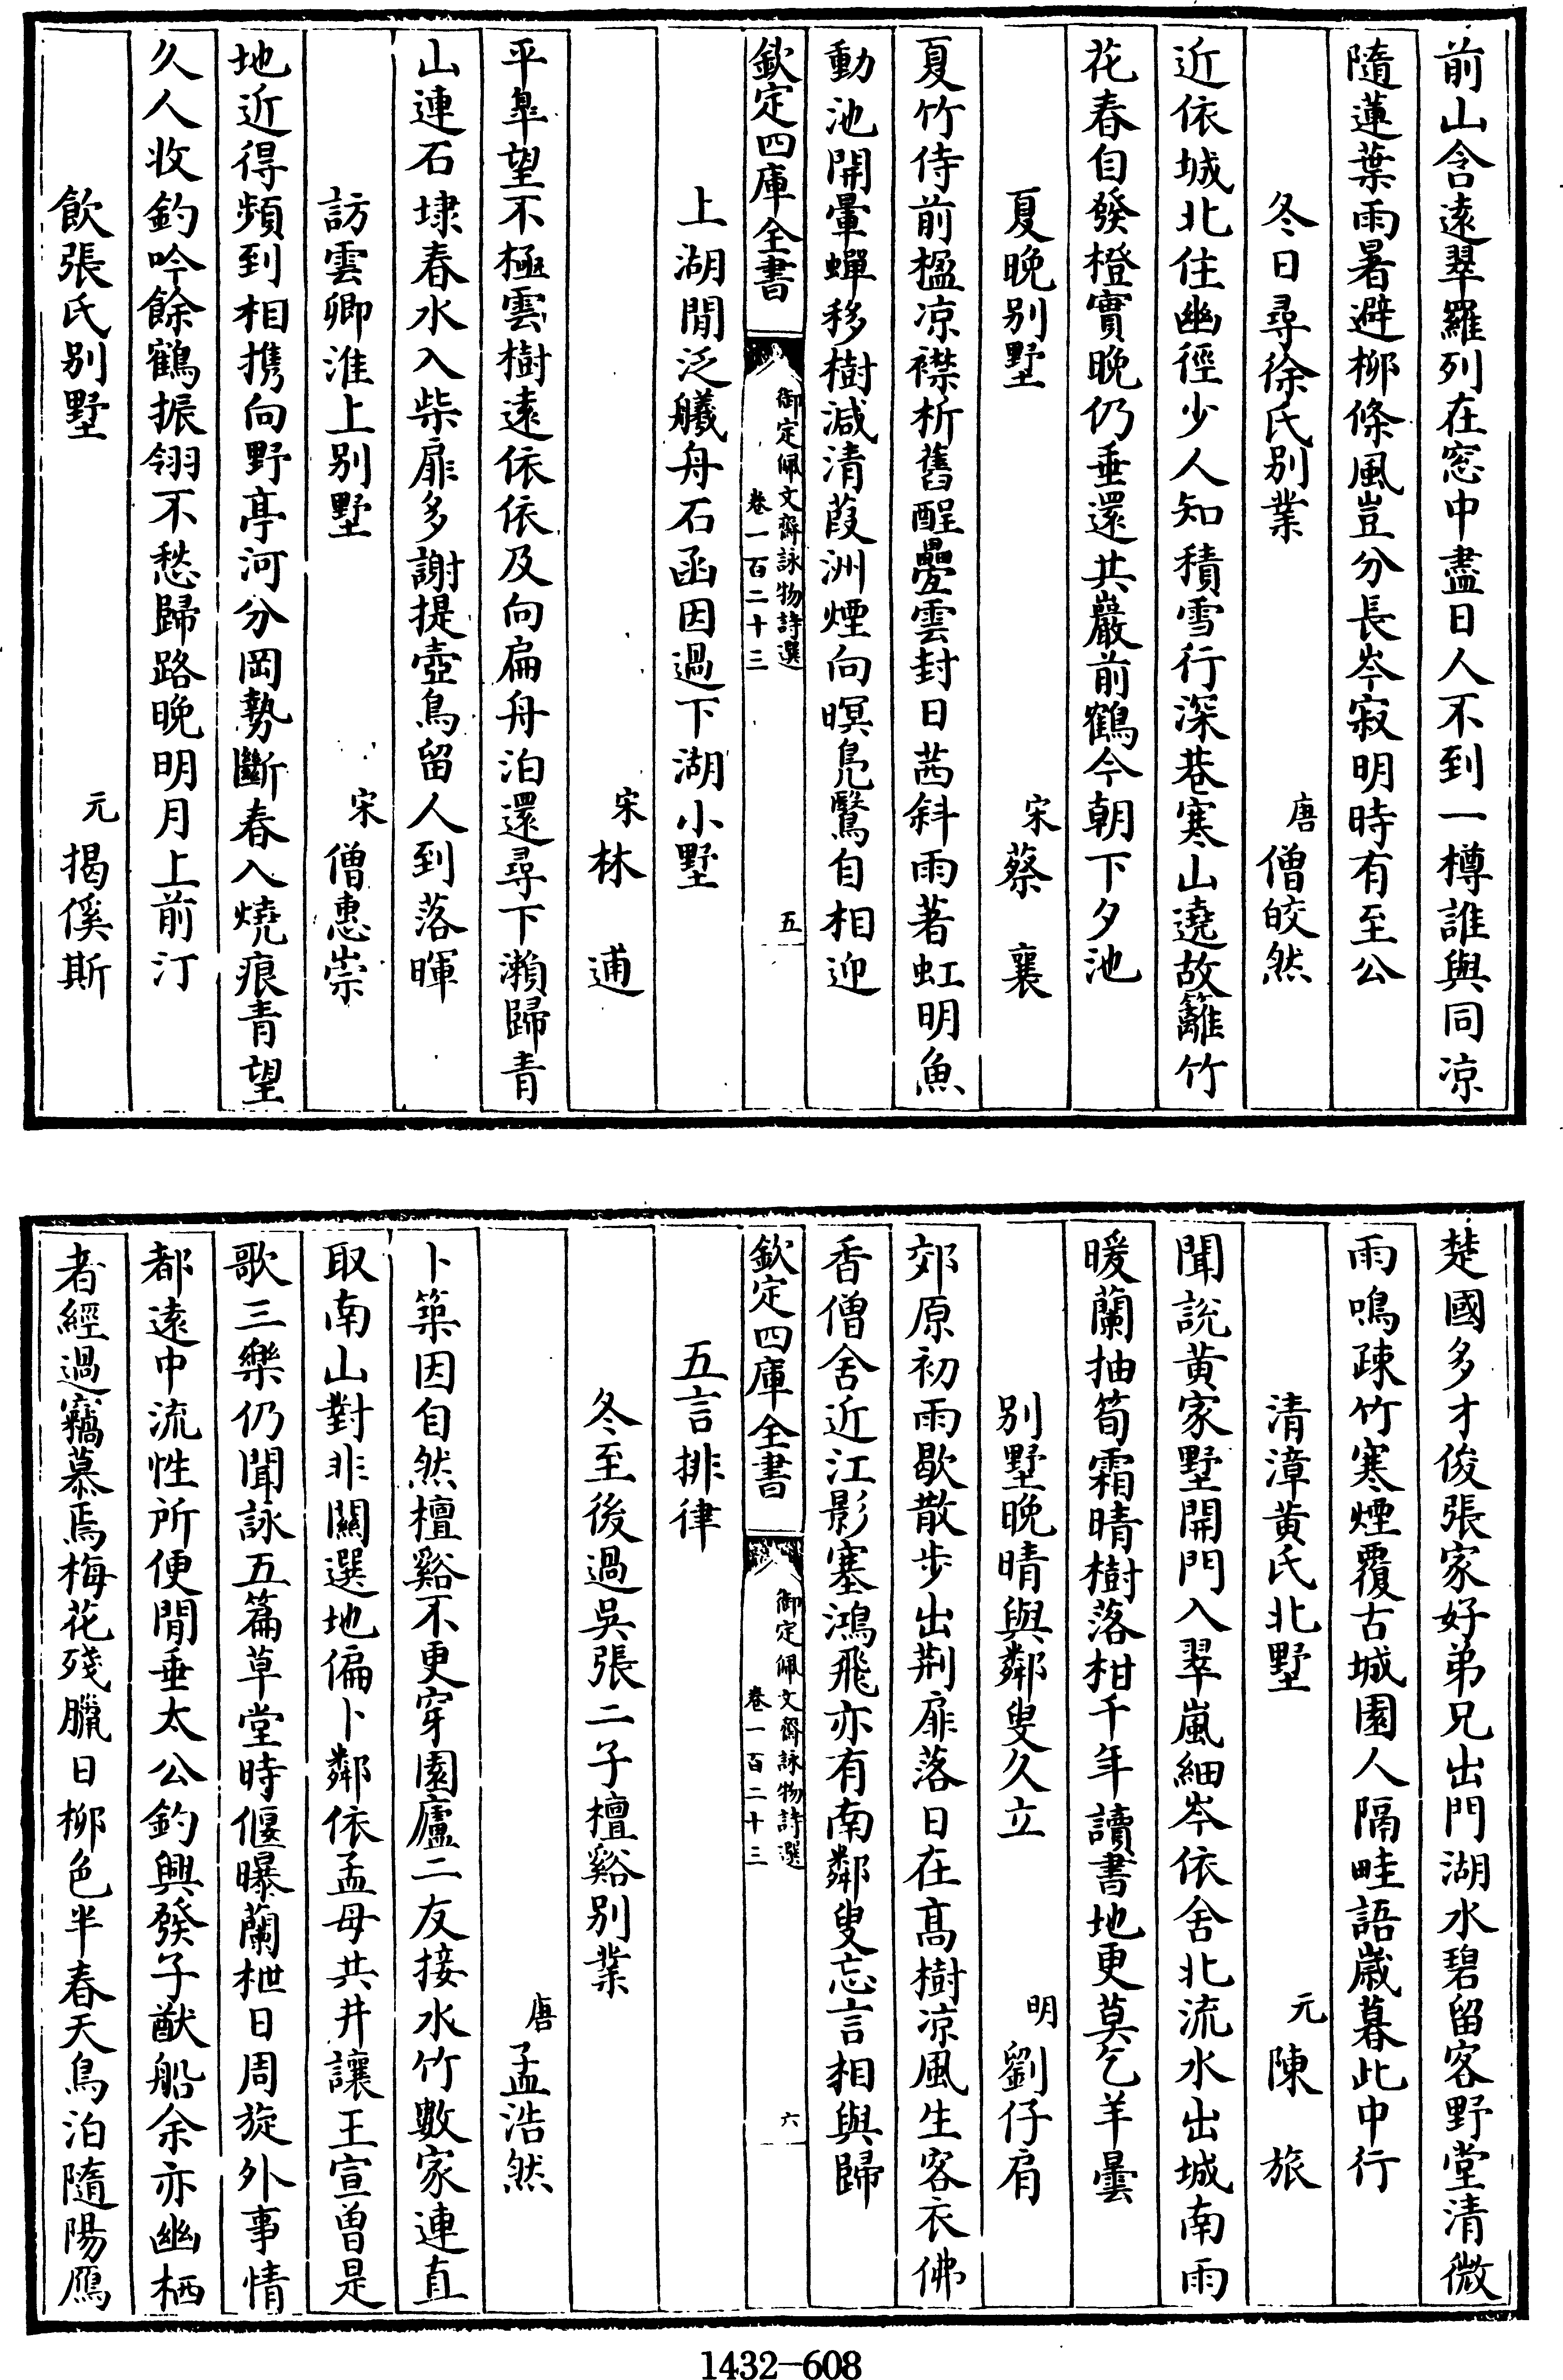 前山含遠翠羅列在窓中盡日人不到一樽誰與同凉
隨蓮葉雨暑避栁條風豈分長岑寂明時有至公
冬日尋徐氏别業
唐 僧皎然
近依城北住幽徑少人知積雪行深巷寒山遶故籬竹
花春自發橙實晚仍垂還共巖前鶴今朝下夕池
夏晚别墅
宋 蔡襄
夏竹侍前楹凉襟析舊酲疉雲封日茜斜雨著虹明魚
動池開暈蟬移樹減清葭洲煙向暝鳬鷖自相迎
欽定四庫全書
御定佩文齋詠物詩選
卷一百二十三
五
上湖閒泛艤舟石函因過下湖小墅
宋 林逋
平臯望不極雲樹遠依依及向扁舟泊還尋下瀨歸青
山連石埭春水入柴扉多謝提壺鳥留人到落暉
訪雲卿淮上别墅
宋 僧惠崇
地近得頻到相携向野亭河分岡勢斷春入燒痕青望
久人收釣吟餘鶴振翎不愁歸路晚明月上前汀
飲張氏别墅
元 揭傒斯
楚國多才俊張家好弟兄出門湖水碧留客野堂清微
雨鳴疎竹寒煙覆古城園人隔畦語歲暮此中行
清漳黄氏北墅
元 陳旅
聞説黄家墅開門入翠嵐細岑依舍北流水出城南雨
暖蘭抽筍霜晴樹落柑千年讀書地更莫乞羊曇
别墅晚晴與鄰叟久立
明 劉仔肩
郊原初雨歇散步出荆扉落日在髙樹凉風生客衣佛
香僧舍近江影塞鴻飛亦有南鄰叟忘言相與歸
欽定四庫全書
御定佩文齋詠物詩選
卷一百二十三
六
五言排律
冬至後過吳張二子檀谿别業
唐 孟浩然
卜築因自然檀谿不更穿園廬二友接水竹數家連直
取南山對非關選地偏卜鄰依孟母共井讓王宣曽是
歌三樂仍聞詠五篇草堂時偃曝蘭枻日周旋外事情
都遠中流性所便閒垂太公釣興發子猷船余亦幽栖
者經過竊慕焉梅花殘臘日栁色半春天鳥泊隨陽鴈
1432—608